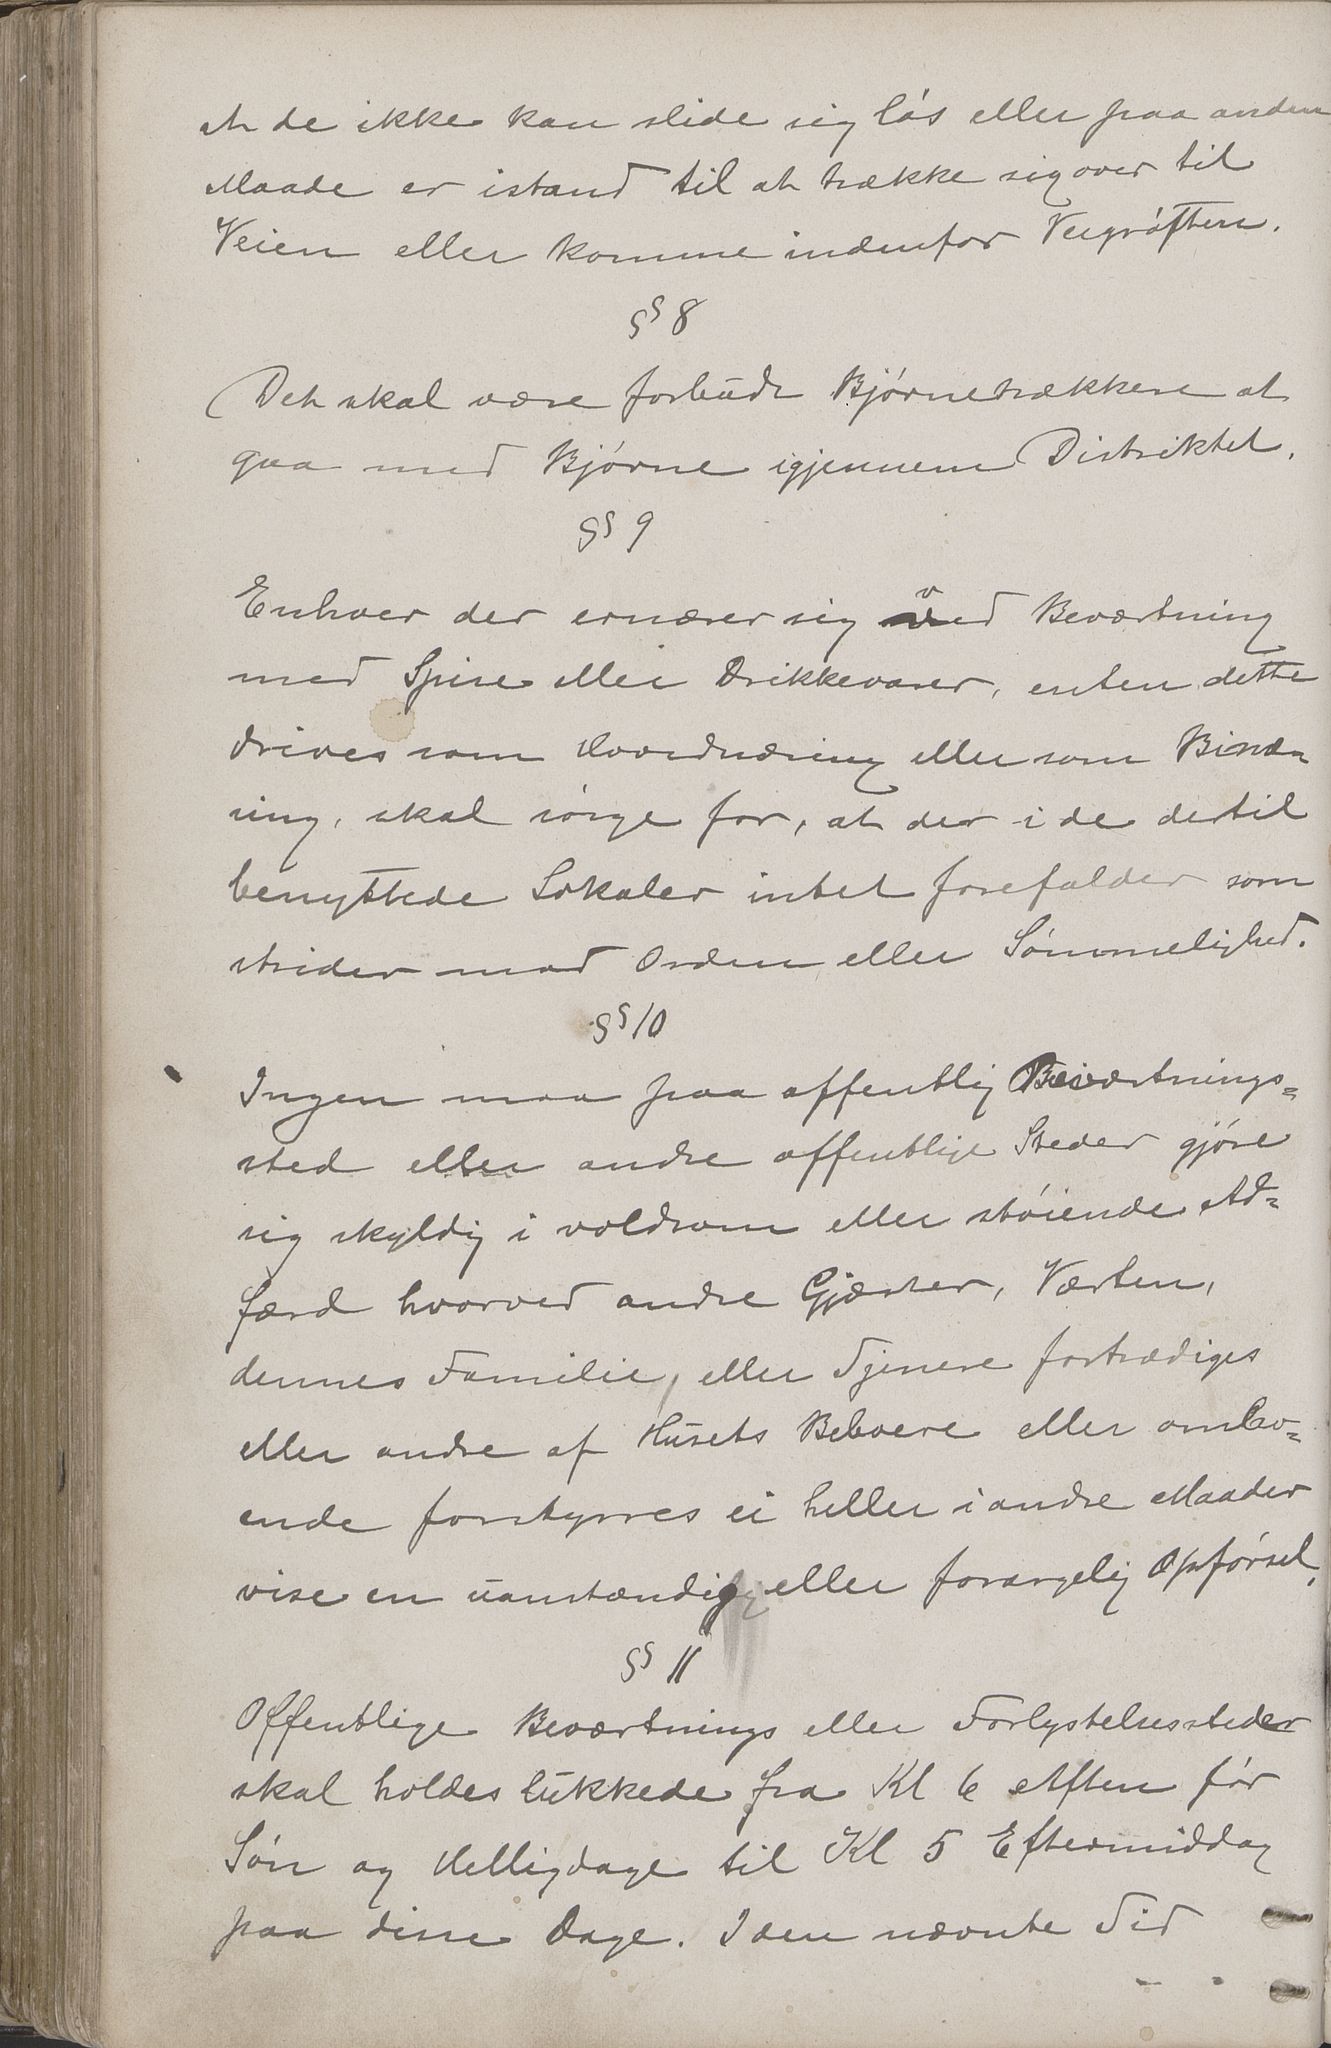 at de ikke kan slide sig løs eller paa anden
Maade er istand til at trække sig over til
Veien eller komme indenfor Veigrøften.
§ 8
Det skal være forbudt Bjørnetrækkere at
gaa med Bjørne igjennem Distriktet.
§ 9
Enhver der ernærer sig ved Beværtning
med Spise eller Drikkevarer, enten dette
drives som Hovednæring eller som Binæ-
ring, skal sørge for, at der i de dertil
benyttede Lokaler intet forefalder som
strider mod Orden eller Sømmelighed.
§ 10
Ingen maa paa offentlig Beværtnings-
sted eller andre offentlige Steder gjøre
sig skyldig i voldsom eller støiende Ad-
færd hvorved andre Gjæster, Værten,
dennes Familie, eller Tjenere fortrædiges
eller andre af Husets Beboere eller ombo-
ende forstyrres ei heller i andre Maader
vise en uanstændig eller forargelig Opførsel.
§ 11
Offentlige Beværtnings eller Forlystelsessteder
skal holdes lukkede fra Kl 6 Aften før
Søn og Helligdage til Kl 5 Eftermiddag
paa disse Dage. I den nævnte Tid